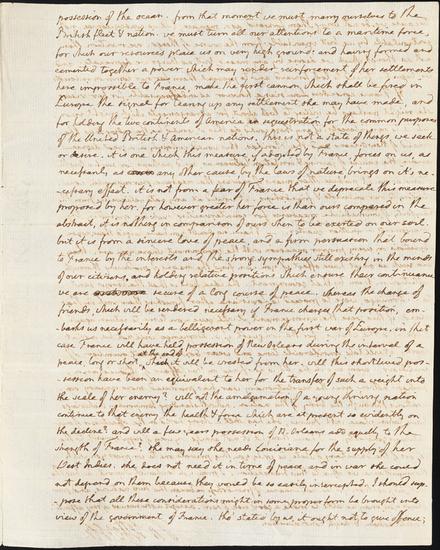 possession of the ocean. from that moment we must marry ourselves to the
British fleet & nation. we must turn all our attentions to a maritime force,
for which our resources place us on very high ground: and having formed and
cemented together a power which may render reinforcement of her settlements
here impossible to France, make the first cannon which shall be fired in
Europe the signal for tearing up any settlement she may have made, and
for holding the two continents of America in sequestration for the common purposes
of the United British & American nations. this is not a state of things we seek
or desire. it is one which this measure, if adopted by France, forces on us, as
necessarily as any other cause by the laws of nature, brings on it's ne-
cessary effect. it is not from a fear of France that we deprecate this measure
proposed by her. for however greater her force is than ours compared in the
abstract, it is nothing in comparison of ours when to be exerted on our soil.
but it is from a sincere love of peace, and a firm persuasion that bound
to France by the interests and the strong sympathies still existing in the minds
of our citizens, and holding relative positions which ensure their continuance
we are secure of a long course of peace. whereas the change of
friends which will be rendered necessary if France changes that position, em-
barks us necessarily as a belligerent power in the first war of Europe. in that
case France will have held possession of New Orleans during the interval of a
peace long or short, at the end of which it will be wrested from her. will this shortlived pos-
-session have been an equivalent to her for the transfer of such a weight into
the scale of her enemy? will not the amalgamation of a young, thriving nation
continue to that enemy the health & force which are at present so evidently on
the decline? and will a few years possession of N. Orleans add equally to the
strength of France? she may say she needs Louisiana for the supply of her
West Indies. she does not need it in time of peace. and in war she could
not depend on them because they would be so easily intercepted. I should sup-
-pose that all these considerations might in some proper form be brought into
view of the government of France. tho' stated by us, it ought not to give offence;